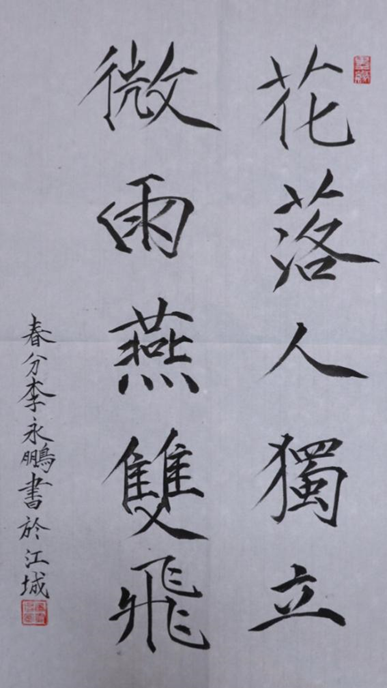 花落人獨立
微雨燕雙飛
春分李永鵬書於江城